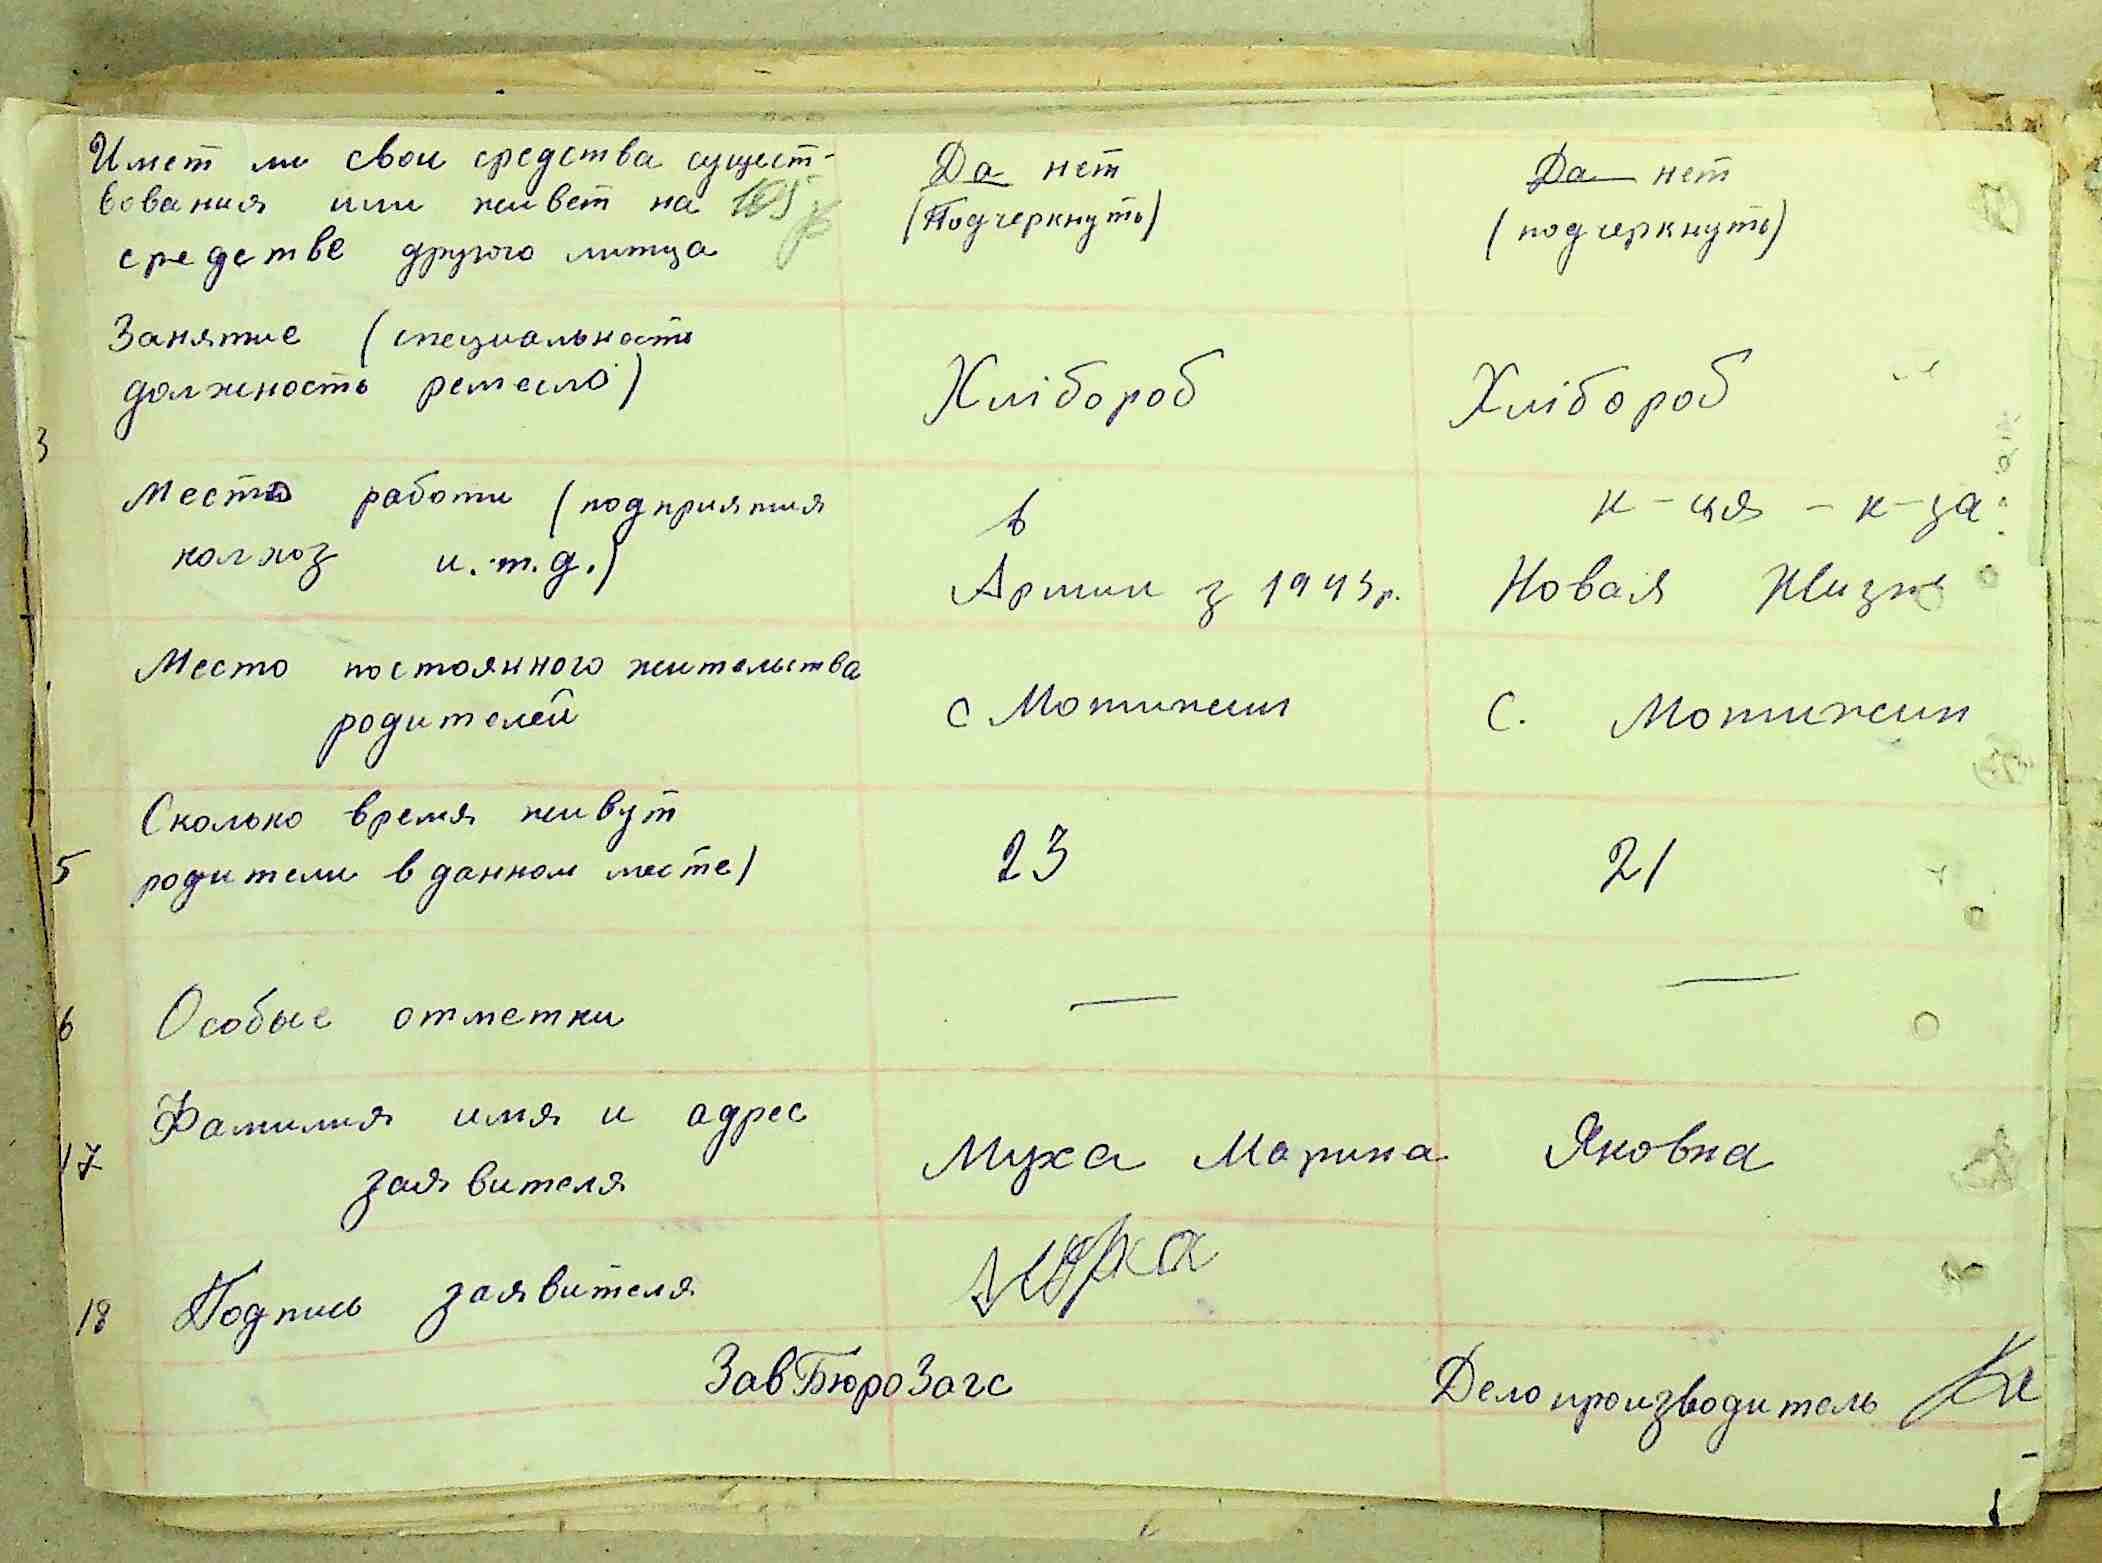 Имет ли свои средства сущест-
вования или живет на
средстве другого литца
Да нет
(Подчеркнуть)
Да нет
(подчеркнуть)
Занятие (специальность
должность ремесло)
Хлібороб
Хлібороб
3
Место работи (подприятия
колхоз и.т.д.)
в
Армии з 1943р.
к-ция - к-за
Новая Жизнь
Место постоянного жительства
родителей
с Мотижин
С. Мотижин
5
Сколько время живут
родители в данном месте)
23
21
6
Особые отметки
—
—
17
Фамилия имя и адрес
заявителя
Муха Марина Яковна
18
Подпись заявителя
ЗавБюроЗагс
Делопроизводитель